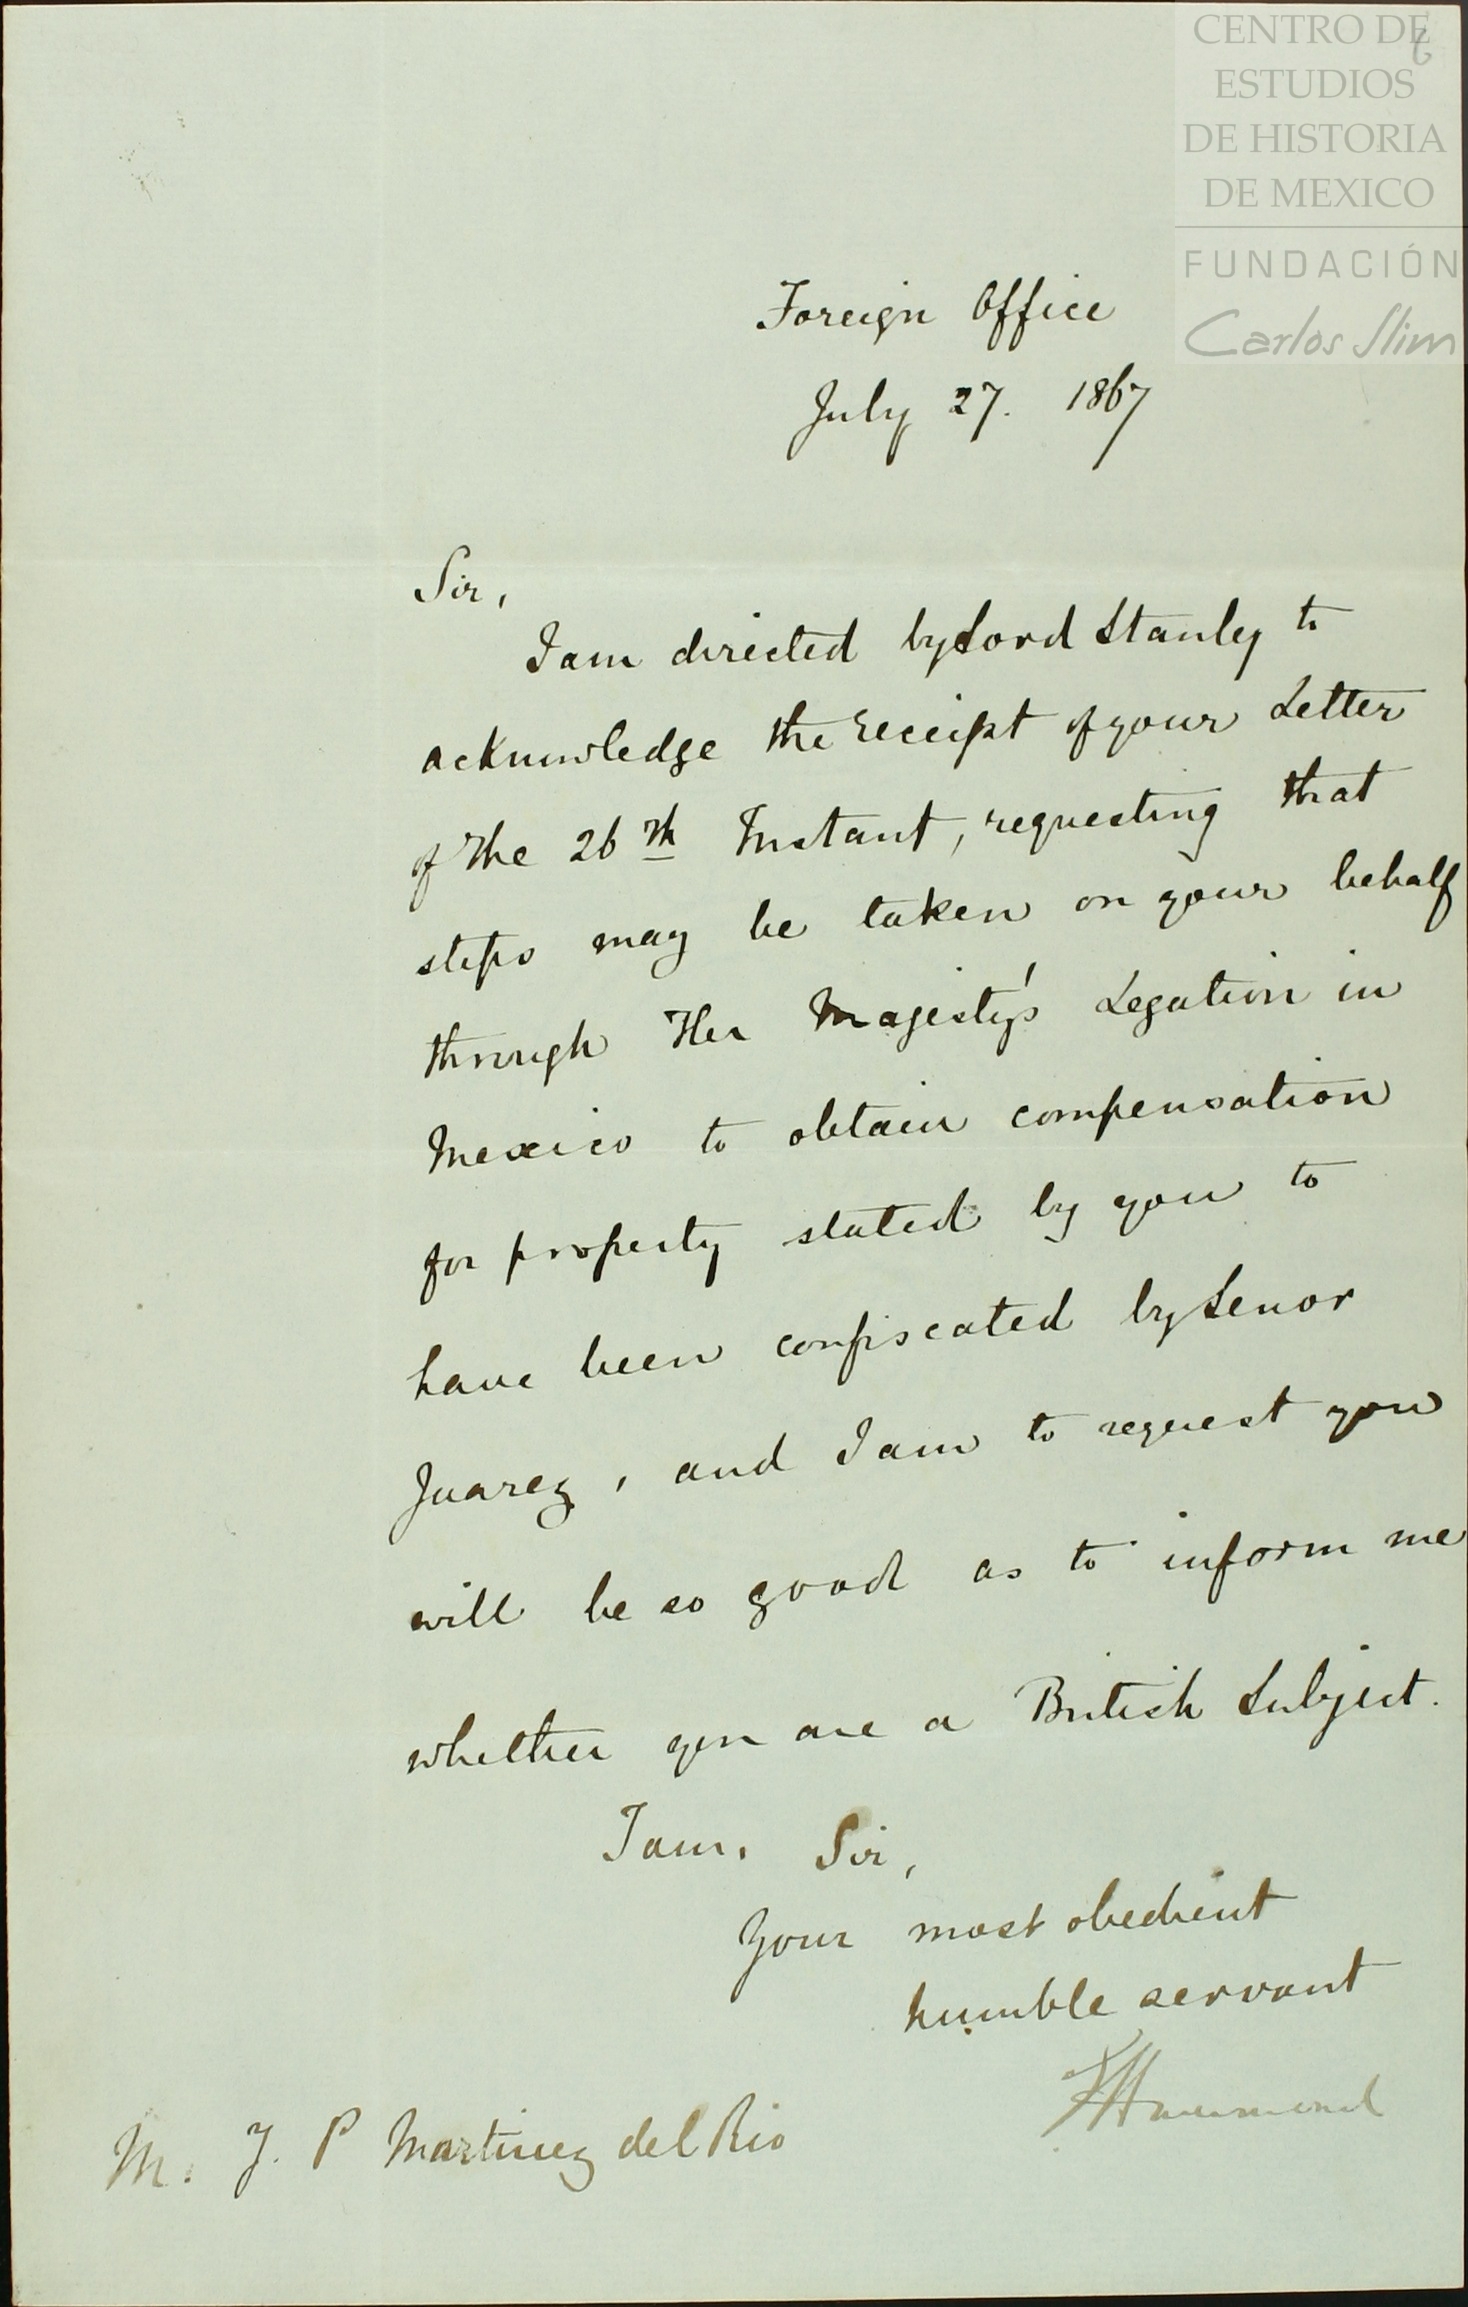 CENTRO DE
ESTUDIOS
DE HISTORIA
DE MEXICO
FUNDACIÓN
Carlos Slim
Foreign Office
July 27. 1867
Sir,
I am directed by Lord Stanley to
acknowledge the receipt of your Letter
of the 26th Instant, requesting that
steps may be taken on your behalf
through Her Majesty's Legation in
Mexico to obtain compensation
for property stated by you to
have been confiscated by Senor
Juarez, and I am to request you
will be so good as to inform me
whether you are a British Subject.
I am, Sir,
Your most obedient
humble servant
E Hammond
M. J. P Martinez del Rio